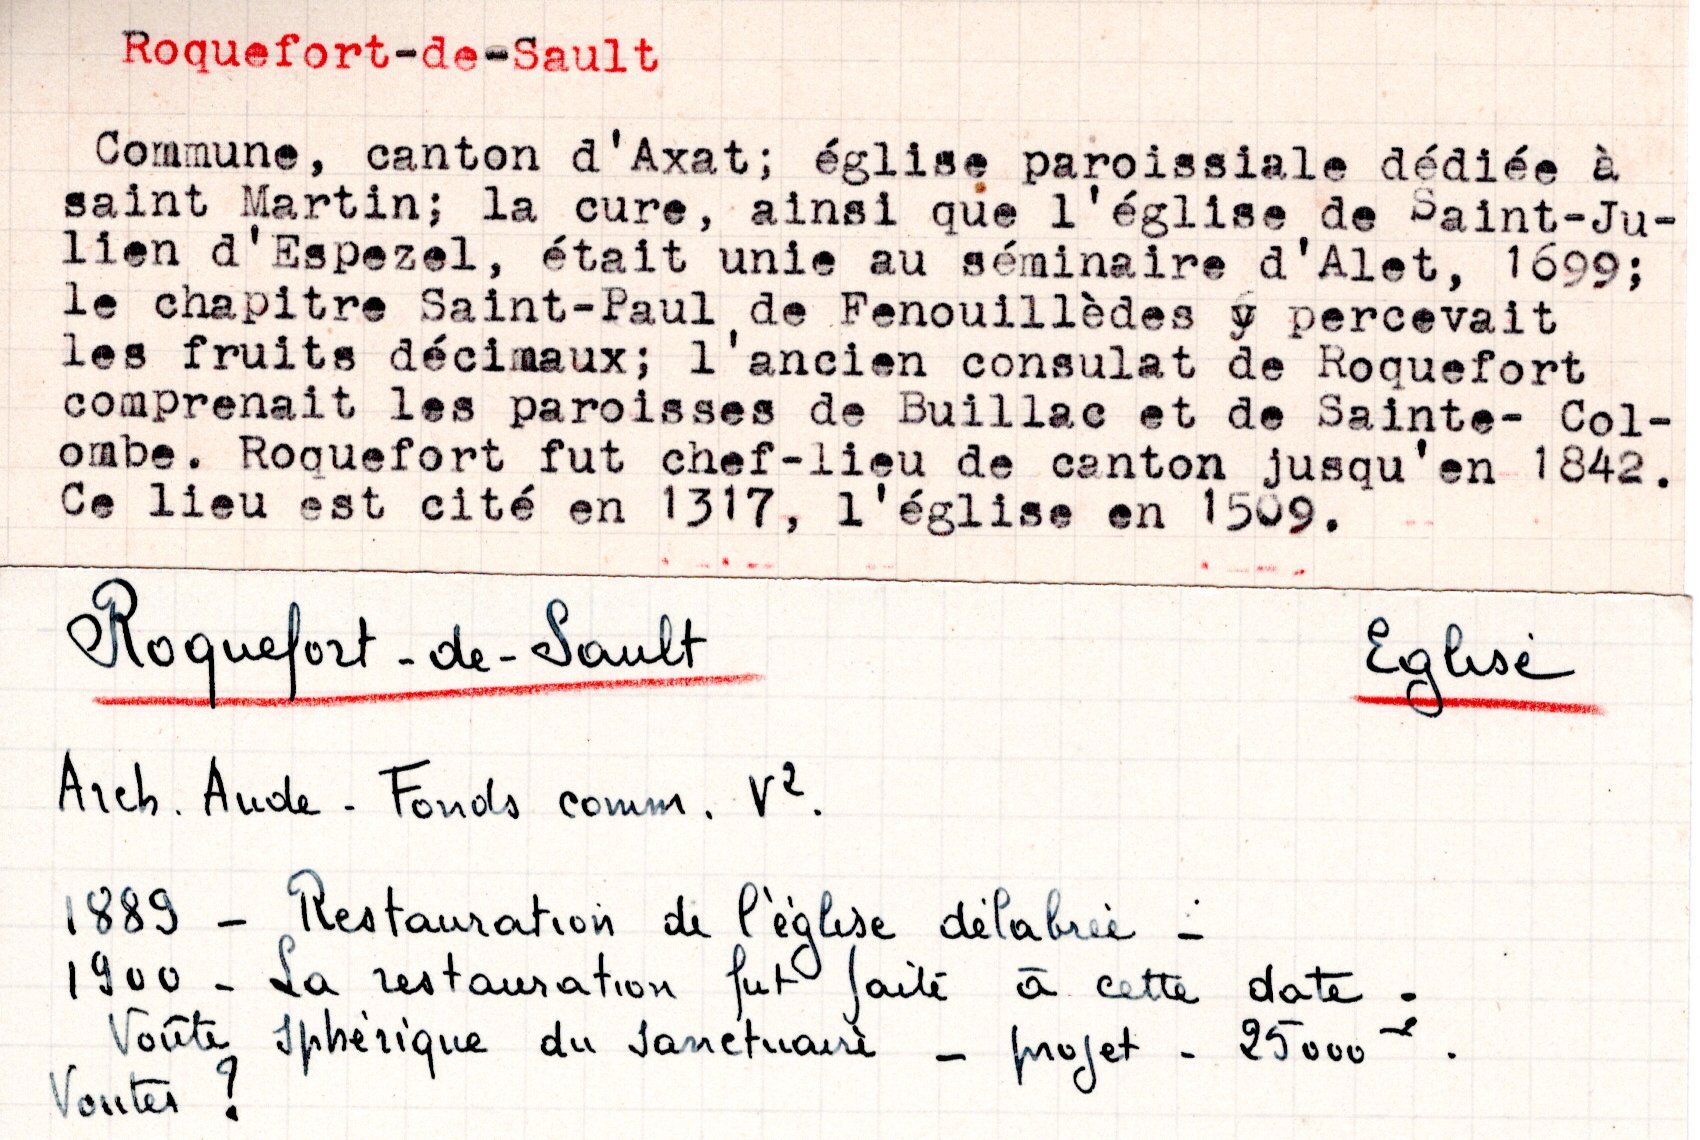 Roquefort-de-Sault
Commune, canton d'Axat; église paroissiale dédiée à
saint Martin; la cure, ainsi que l'église de Saint-Ju-
lien d'Espezel, était unie au séminaire d'Alet, 1699;
le chapitre Saint-Paul de Fenouillèdes y percevait
les fruits décimaux; l'ancien consulat de Roquefort
comprenait les paroisses de Buillac et de Sainte- Col-
ombe. Roquefort fut chef-lieu de canton jusqu'en 1842.
Ce lieu est cité en 1317, l'église en 1509.
Roquefort-de-Sault Eglise
Arch. Aude - Fonds comm. V².
1889 - Restauration de l'église délabrée -
1900 - La restauration fut faite à cette date.
Voûte sphérique du sanctuaire - projet - 25000
Voutes ?